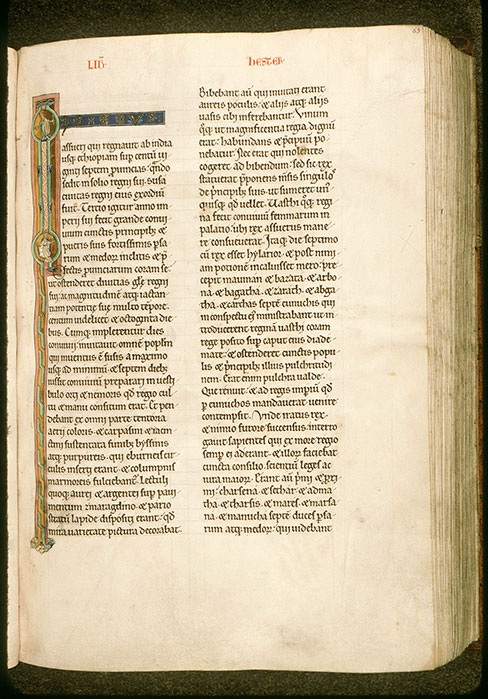 63
LIB̄
hESTER
IN DIEBUS
assueri qui regnauit ab india
usq; ethiopiam sup centū uı
ginti septem puincias· qn̄do
sedit in solio regni sui· susa
ciuitas regni eius exordiū
fuit· Tercio igitur anno im
perii sui fecit grande conui
uium cunctis principib; &
pueris suis fortissimis psa
rum & medor̄ inclitis & p̄
fectis puinciarum coram se·
ut ostenderet diuitias głe regni
sui· ac magnitudinē atq; iactan
tiam potentie sue multo tēpore·
centum uidelicet & octoginta die
bus· Cumq; implerentur dies
conuiuii· inuitauit omnē popłm
qui inuentus ē susis a maximo
usq; ad minimū· & septem dieb;
iussit conuiuiū preparari in uesti
bulo orti & nemoris qd̄ regio cul
tu & manu consitum erat· Et pen
debant ex omni parte tentoria
aerii coloris & carpasini & iacin
ctini sustentata funib; byssinis
atq; purpureis· qui eburneis cir
culis inserti erant· & columpnis
marmoreis fulciebant̄· Lectuli
quoq; aurei & argentei sup paui
mentum zmaragdino & pario
stratū lapide dispositi erant· qd̄
mira uarietate pictura decorabat·
Bibebant aū qui inuitati erant
aureis poculis· & aliis atq; aliis
uasis cibi inferebantur· Vinum
q̄q; ut magnificentia regia dignū
erat· habundans & p̄cipuū po
nebatur· Nec erat qui nolentes
cogeret ad bibendum· sed sic rex
statuerat p̄ponens m̄sis singulos
de p̄ncipib; suis· ut sumeret un͛
quisq; qd̄ uellet· Uasthi q̄q; regi
na fecit conuiuiū feminarum in
palatio· ubi rex assuerus mane
re consueuerat· Itaq; die septimo
cū rex esset hylarior· & post nimi
am potionē incaluisset mero· pre
cepit mauman & barata· & arbo
na· & bagatha· & zarath· & abga
tha· & carthas septē eunuchis qui
in conspectu eı͛ ministrabant· ut in
troducerent reginā uasthi coram
rege posito sup caput eius diade
mate· & ostenderet cunctis popu
lis & p̄ncipib; illius pulchritudı
nem· Erat enim pulchra ualde·
Que renuit· & ad regis impiū qd̄
p eunuchos mandauerat uenire
contempsit· Vnde iratus rex·
& nimio furore succensus· interro
gauit sapientes qui ex more regio
semp ei aderant· & illor̄ faciebat
cuncta consilio· scientiū leges ac
iura maior̄· Erant aū p̄mi & pxi
mi· charsena· & sethar· & adma
tha· & tharsis· & mares· & marsa
na· & manucha septē duces psa
rum atq; medor̄· qui uidebant